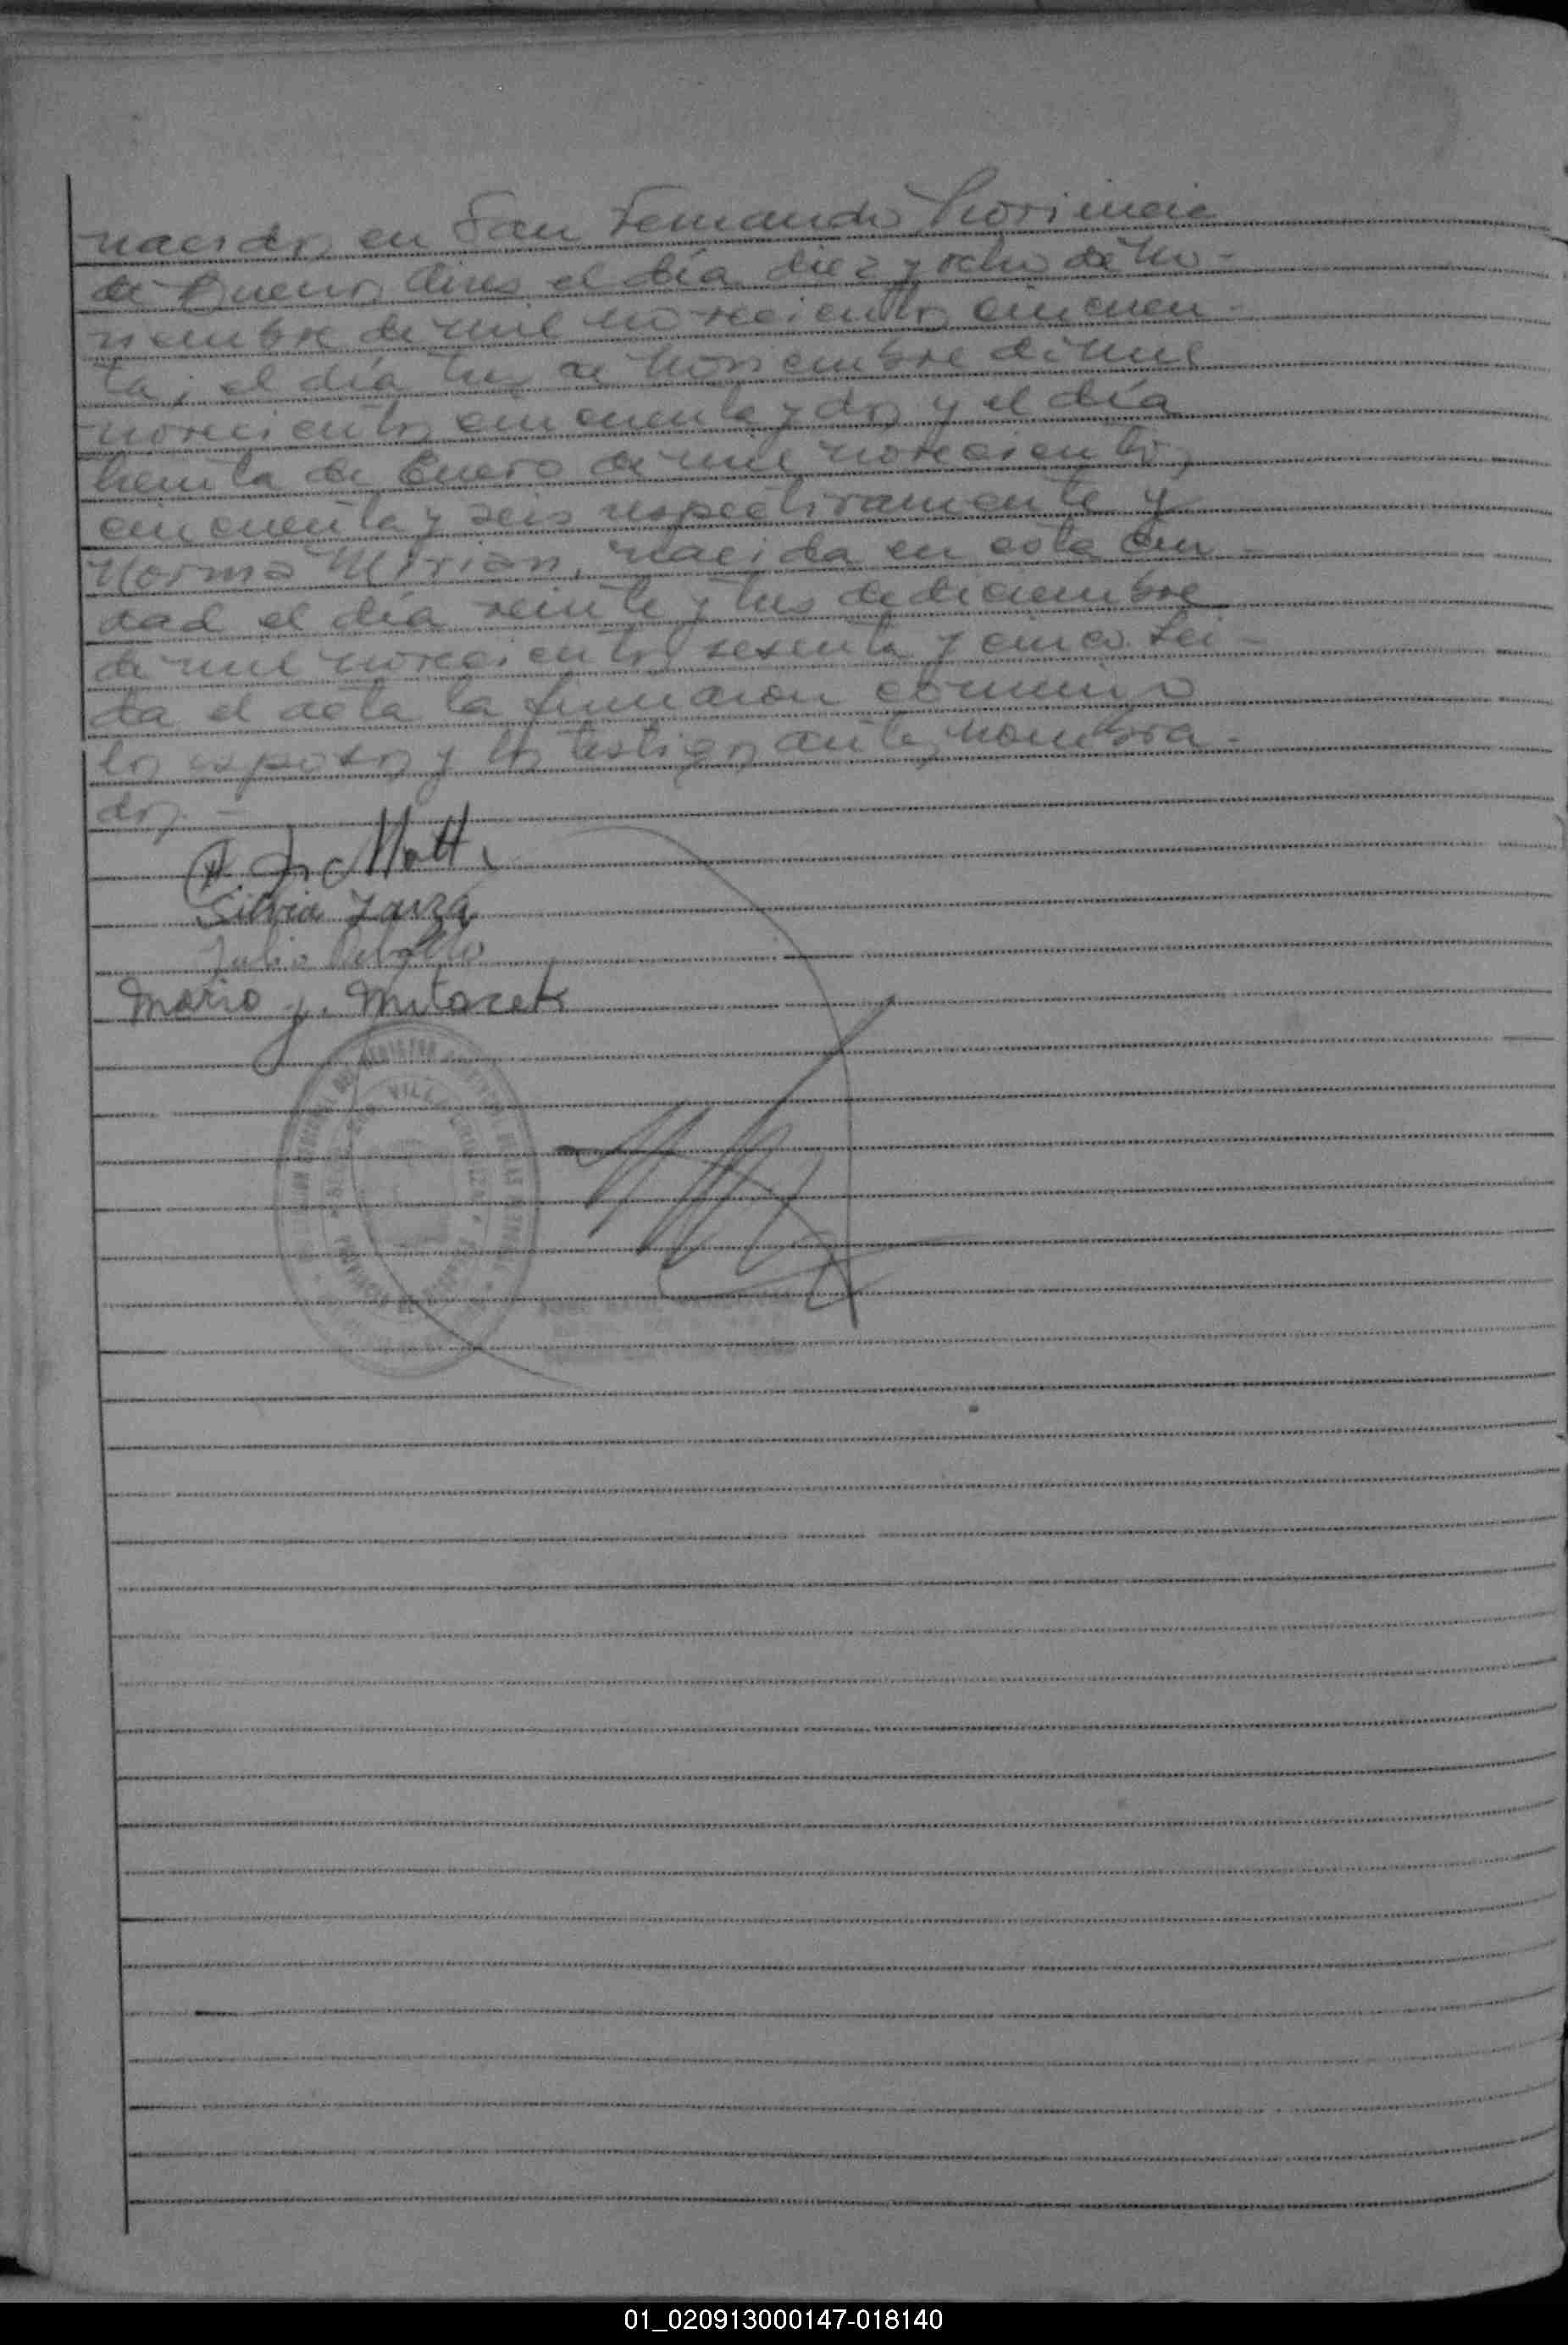 nacidos en San Fernando Provincia
de Buenos Aires el día diez y ocho de no-
viembre de mil novecientos cincuen-
ta; el día tres de noviembre de mil
novecientos cincuenta y dos y el día
treinta de Enero de mil novecientos
cincuenta y seis respectivamente y
Norma Mirian, nacida en esta ciu-
dad el día veinte y tres de diciembre
de mil novecientos sesenta y cinco. Leí-
da el acta la firmaron conmigo
los esposos y los testigos antes nombra-
dos.-
Silvia Zarza
Julio
Mario J.
VILLA
PROVINCIA DE
01_020913000147-018140